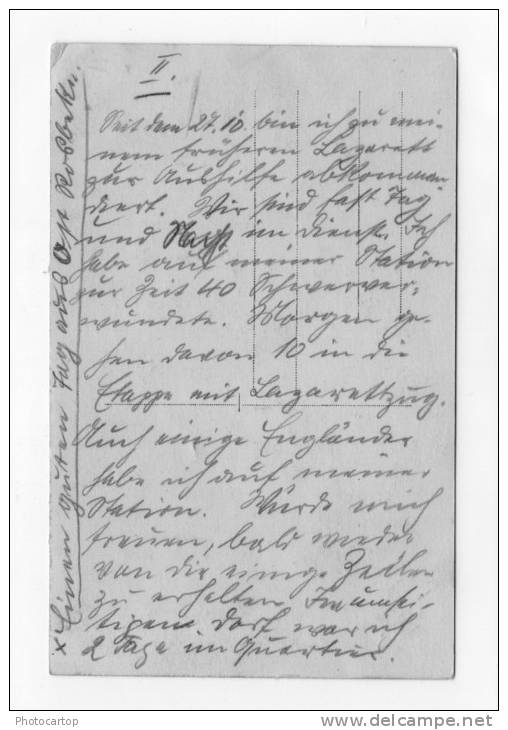 II.
Seit dem 27.10. bin ich zu mei-
nem früheren Lazarett
zur Aushilfe abkomman
diert. Wir sind fast Tag
und Nacht im Dienst. Ich
habe auf meiner Station
zur Zeit 40 Schwerver-
wundete. Morgen ge-
hen davon 10 in die
Etappe mit Lazarettzug.
Auch einige Engländer
habe ich auf meiner
Station. Würde mich
freuen, bald wieder
von Dir einige Zeilen
zu erhalten. In umsei-
tigem Dorf war ich
2 Tage im Quartier.
x Einen guten Tag aus Ost Rosbeke.
Photocartop
www.delcampe.net